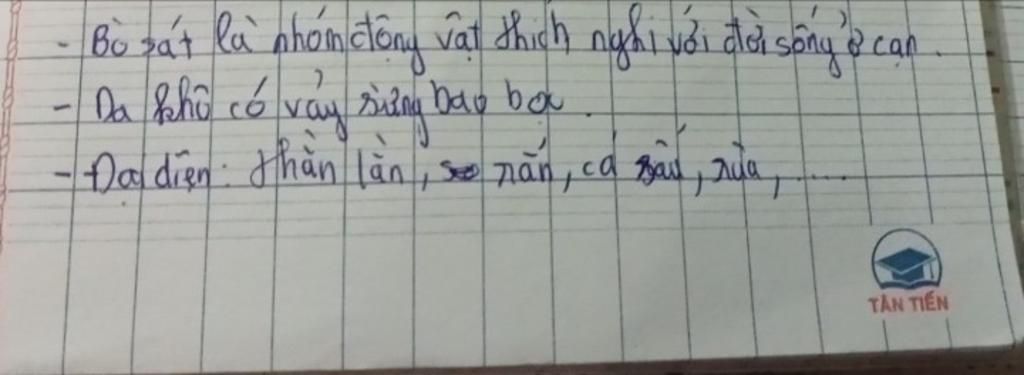 - Bò sát là nhóm động vật thích nghi với đời sống ở cạn.
- Da khô có vảy sừng bao bọc.
- Đại diện: thằn lằn, rắn, cá sấu, rùa, .....
TÂN TIẾN